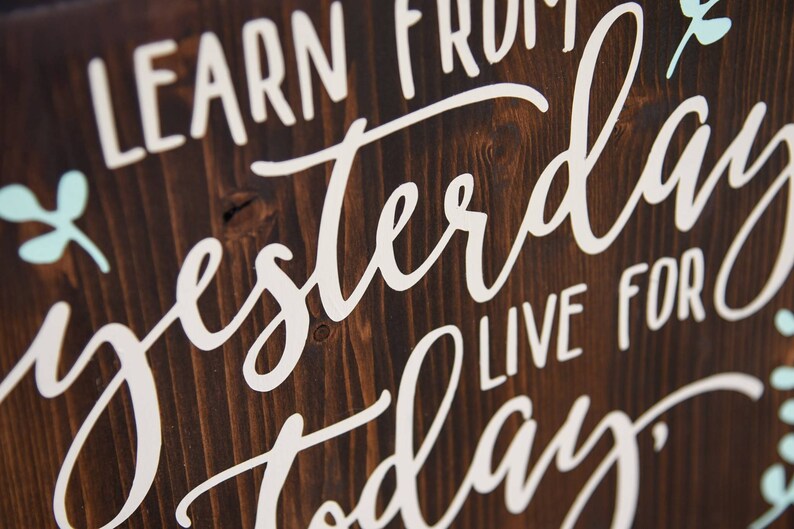 LEARN FROM
yesterday
LIVE FOR
today,